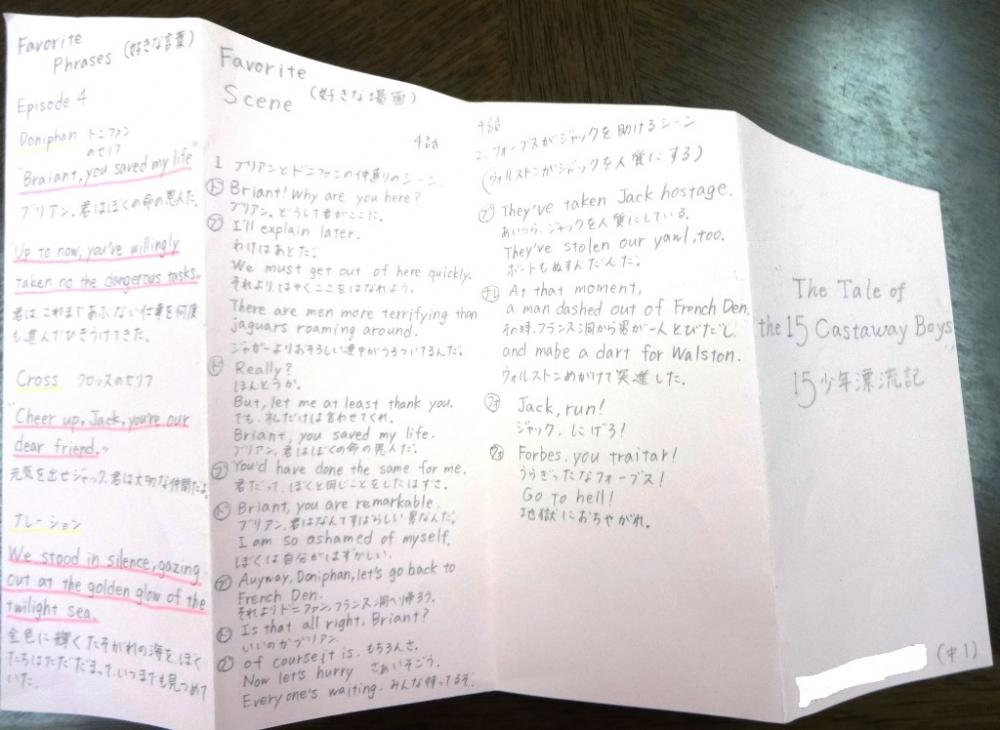 Favorite
Phrases (好きな言葉)
Episode 4
Doniphan ドニファン
のセリフ
"Braiant, you saved my life"
ブリアン、君はぼくの命の恩人だ。
"Up to now, you've willingly
taken no the dangerous tasks."
君は、これまであぶない仕事を何度
も進んでひきうけてきた。
Cross クロッスのセリフ
"Cheer up, Jack, you're our
dear friend."
元気を出せジャック、君は大切な仲間だよ
ナレーション
We stood in silence, gazing
out at the golden glow of the
twilight sea.
金色に輝くたそがれの海を、ぼく
たちはただだまって、いつまでも見つめて
いた。
Favorite
Scene (好きな場面)
4話
1 ブリアンとドニファンの仲直りのシーン
ド Briant! Why are you here?
ブリアン。どうして君がここに。
ブ I'll explain later.
わけはあとだ。
We must get out of here quickly.
それより、はやくここをはなれよう。
There are men more terrifying than
jaguars roaming around.
ジャガーよりおそろしい連中がうろついてるんだ。
ド Really?
ほんとうか。
But, let me at least thank you.
でも、礼だけは言わせてくれ。
Briant, you saved my life.
ブリアン、君はぼくの命の恩人だ。
ブ You'd have done the same for me.
君だって、ぼくと同じことをしたはずさ。
ド Briant, you are remarkable.
ブリアン、君はなんてすばらしい男なんだ。
I am so ashamed of myself.
ぼくは自分がはずかしい。
ブ Auyway, Doniphan, let's go back to
French Den.
それよりドニファン、フランス洞へ帰ろう。
ド Is that all right, Briant?
いいのかブリアン。
ブ of course it is. もちろんさ。
Now let's hurry さぁいそごう。
Everyone's waiting. みんな待ってるぞ。
4話
2. フォーブスがジャックを助けるシーン
(ウォルストンがジャックを人質にする)
ブ They've taken Jack hostage.
あいつら、ジャックを人質にしている。
They've stolen our yawl, too.
ボートもぬすんだんだ。
ナレ At that moment,
a man dashed out of French Den.
その時、フランス洞から男が一人とびだし
and mabe a dart for Walston.
ウォルストンめがけて突進した。
フォ Jack, run!
ジャック、にげろ!
ウォ Forbes, you traitar!
うらぎったなフォーブス!
Go to hell!
地獄におちやがれ。
The Tale of
the 15 Castaway Boys
15少年漂流記
(中1)